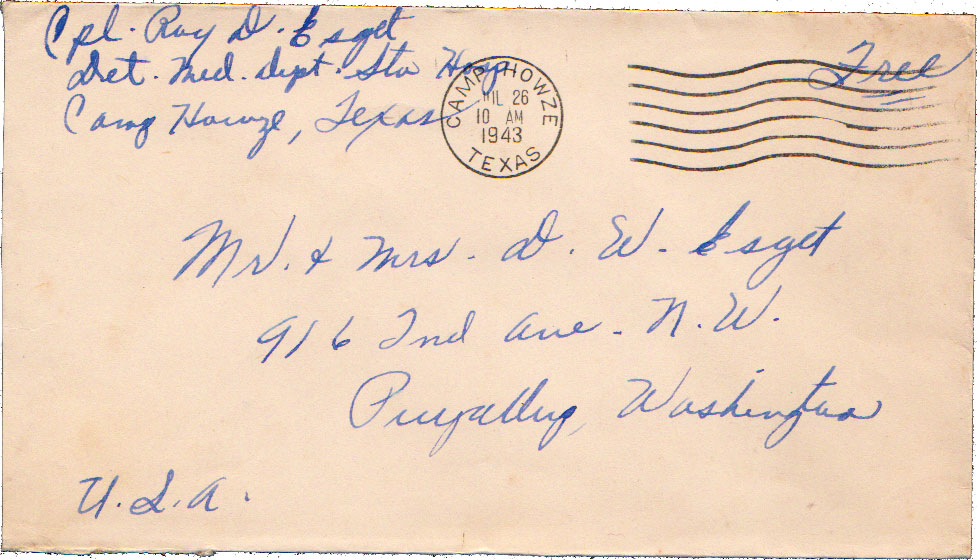 Cpl. Roy D. Esget
Det. Med. Dept. Sta Hosp
Camp Howze, Texas
Free
CAMP HOWZE
JUL 26
10 AM
1943
TEXAS
Mr. & Mrs. D. W. Esget
916 2nd Ave. N.W.
Puyallup, Washington
U.S.A.